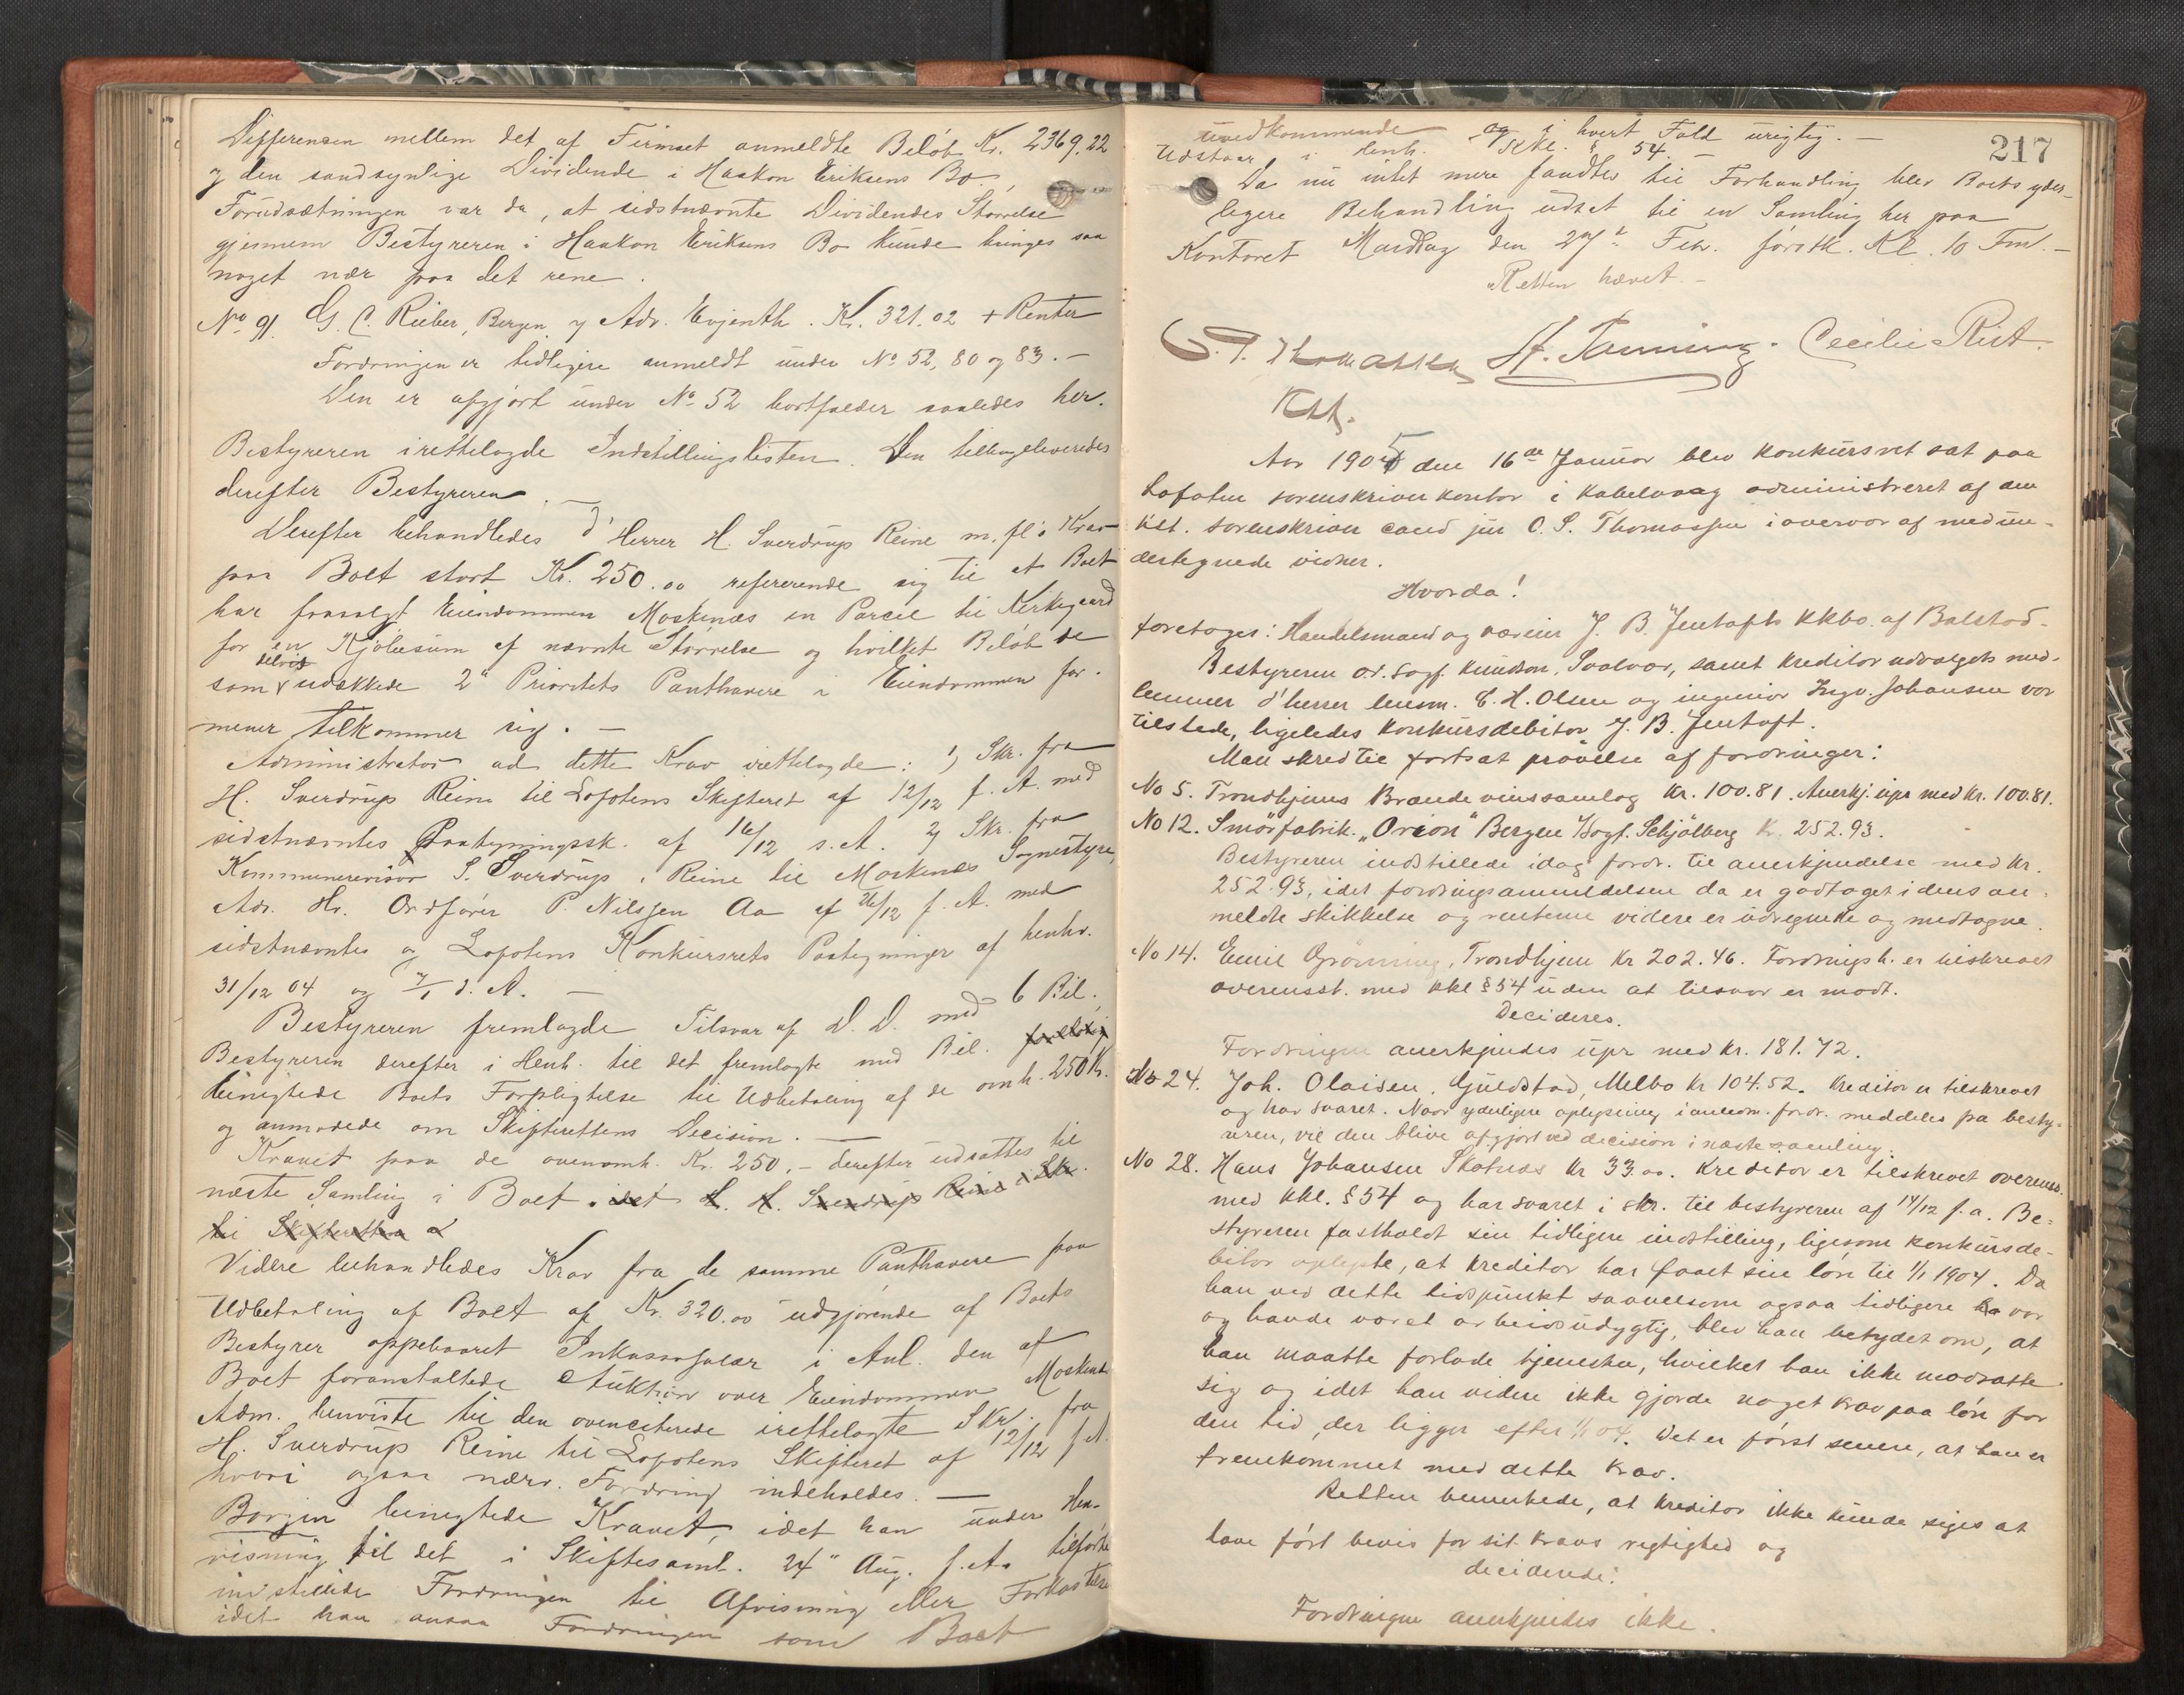 Differensen mellem det af Firmaet anmeldte Beløb Kr. 2369.22
og den sandsynlige Dividende i Haakon Eriksens Bo.
Forudsætningen var da, at sidstnævnte Dividendes Størrelse
gjennem Bestyreren i Haakon Eriksens Bo kunde bringes saa
noget nær paa det rene.
No 91. G. C. Rieber, Bergen v/ Adv. Evjenth. Kr. 321.02 + Renter
Fordringen er tidligere anmeldt under No 52, 80 og 83.-
Den er afgjort under No 52 bortfalder saaledes her.
Bestyreren irettelagde Indstillingslisten. Den tilbageleveredes
derefter Bestyreren.-
Derefter behandledes d'Herrer H. Sverdrup Reine m. fl's Krav
paa Boet stort Kr. 250.00 refererende sig til at Boet
har frasolgt Eiendommen Moskenæs en Parcel til Kirkegaard
for en Kjøbesum af nævnte Størrelse og hvilket Beløb de
som delvis udækkede 2" Prioritets Panthavere i Eiendommen for-
mener tilkommer sig.-
Administrator ad dette Krav irettelagde: 1) Skr. fra
H. Sverdrup Reine til Lofotens Skifteret af 12/12 f. A. med
sidstnævntes Paategningssk. af 16/12 s. A. 2) Skr. fra
Kommunerevisor S. Sverdrup, Reine til Moskenæs Sognestyre,
Adr. Hr. Ordfører P. Nilssen Aa af 26/12 f. A. med
sidstnævntes og Lofotens Konkursrets Paategninger af henhv.
31/12 04 og 7/1 d. A. -
Bestyreren fremlagde Tilsvar af D. D. med 6 Bil.
Bestyreren derefter i Henh. til det fremlagte med Bil.
benegtede Boets Forpligtelse til Udbetaling af de omh. 250 Kr.
og anmodede om Skifterettens Decision.-
Kravet paa de ovenomh. Kr. 250,- derefter udsattes til
næste Samling i Boet. idet H. H. Sverdrup Reine i Skr.
til Skifteretten
Videre behandledes Krav fra de samme Panthavere paa
Udbetaling af Boet af Kr. 320.00 udgjørende af Boets
Bestyrer oppebaaret Inkassosalær i Anl. den af
Boet foranstaltede Auktion over Eiendommen Moskenæs
Adm. henviste til den ovenciterede irettelagte Skr. fra
H. Sverdrup Reine til Lofotens Skifteret af 12/12 f. A.
hvori ogsaa nærv. Fordring indeholdes.-
Borgen benegtede Kravet, idet han under Hen-
visning til det i Skiftesaml. 24" Aug. f. A. tilførte
indstillede Fordringen til Afvisning eller Forkastelse
idet han ansaa Fordringen som Boet
217
uvedkommende og i hvert Fald urigtig.-
Udstaar i Henh. Kkl. § 54.-
Da nu intet mere fandtes til Forhandling blev Boets yder-
ligere Behandling udsat til en Samling her paa
Kontoret Mandag den 27de Febr. førstk. Kl. 10 Fm.-
Retten hævet.-
O. S. Thomassen H. Tanning. Cecilie Rist.
Kst.
Aar 1905 den 16de Januar blev konkursret sat paa
Lofoten sorenskriverkontor i Kabelvaag administreret af den
kst. sorenskriver cand jur O. S. Thomassen i overvær af medun-
dertegnede vidner.
Hvorda!
foretoges: Handelsmand og væreier J. B. Jentofts kkbo. af Balstad.
Bestyreren o.r.sagf. Knudson, Svolvær, samt kreditorudvalgets med-
lemmer d'herrer lensm. E. H. Olsen og ingeniør Ingv. Johansen var
tilstede, ligeledes konkursdebitor J. B. Jentoft.
Man skred til fortsat prøvelse af fordringer:
No 5. Trondhjems Brændevinssamlag Kr. 100.81. Anerkj. upr med kr. 100.81.
No 12. Smørfabrik. "Orion" Bergen v/sagf. Schjølberg Kr. 252.93.
Bestyreren indstillede idag fordr. til anerkjendelse med kr.
252.93, idet fordringsanmeldelsen da er godtaget i dens an-
meldte skikkelse og renterne videre er udregnede og medtagne.
No 14. Emil Grønning, Trondhjem Kr 202.46. Fordringsh. er tilskrevet
overensst. med kkl § 54 uden at tilsvar er modt.
Decideres.
Fordringen anerkjendes upr med kr. 181.72.
No 24. Joh. Olaisen, Guldstad, Melbo kr 104.52. Kreditor er tilskrevet
og har svaret. Naar yderligere oplysning i anledn. fordr. meddeles fra besty-
reren, vil den blive afgjort ved decision i næste samling.
No 28. Hans Johansen Skotnæs kr 33.00. Kreditor er tilskrevet overenss.
med kkl. § 54 og har svaret i skr. til bestyreren af 14/12 f. a. Be-
styreren fastholdt sin tidligere indstilling, ligesom konkursde-
bitor oplyste, at kreditor har faaet sin løn til 1/1 1904. Da
han ved dette tidspunkt saavelsom ogsaa tidligere var
og havde været arbeidsudygtig, blev han betydet om, at
han maatte forlade tjenesten, hvilket han ikke modsatte
sig og idet han videre ikke gjorde noget krav paa løn for
den tid, der ligger efter 1/1 04. Det er først senere, at han er
fremkommet med dette krav.
Retten bemerkede, at kreditor ikke kunde siges at
have ført bevis for sit kravs rigtighed og
deciderede:
Fordringen anerkjendes ikke.